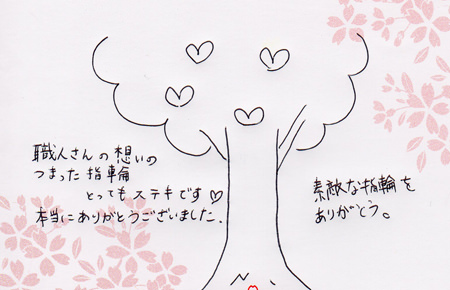 職人さんの想いの
つまった指輪
とってもステキです♡
本当にありがとうございました.
素敵な指輪を
ありがとう。